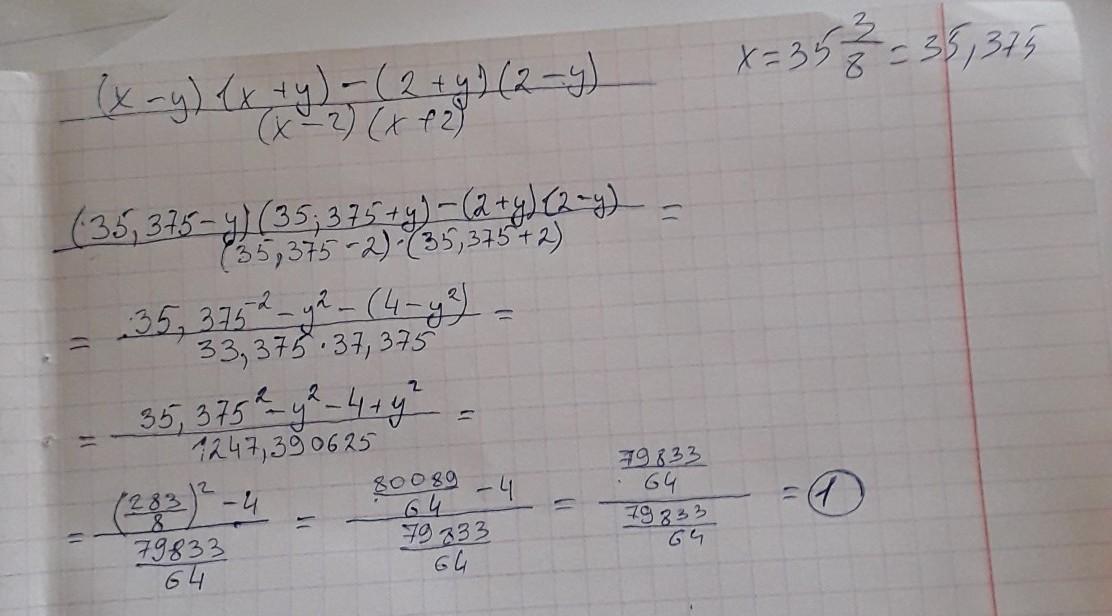 (x-y)·(x+y)-(2+y)(2-y)
x=35 3/8 = 35,375
(x-2)(x+2)
(35,375-y)(35,375+y)-(2+y)(2-y) =
(35,375-2)·(35,375+2)
= 35,375² - y² - (4-y²) =
33,375·37,375
= 35,375² - y² - 4 + y² =
1247,390625
= (283/8)² - 4 = 80089/64 - 4 = 79833/64 = 1
79833/64 79833/64 79833/64